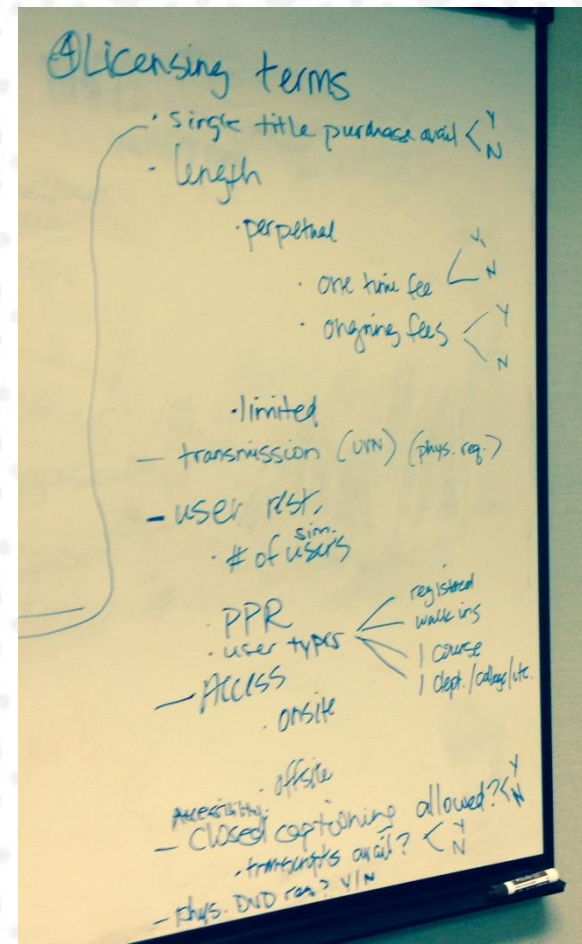 ④ Licensing terms
· single title purchase avail < Y N
- length
· perpetual
· one time fee < Y N
· ongoing fees < Y N
· limited
- transmission (UVN) (phys. req.)
- user rest.
· # of sim. users
· PPR
· user types < registered
walk ins
1 course
1 dept./college/etc.
- Access
· onsite
· offsite
Accessibility:
- Closed captioning allowed? < Y N
· transcripts avail? < Y N
- Phys. DVD req? Y/N